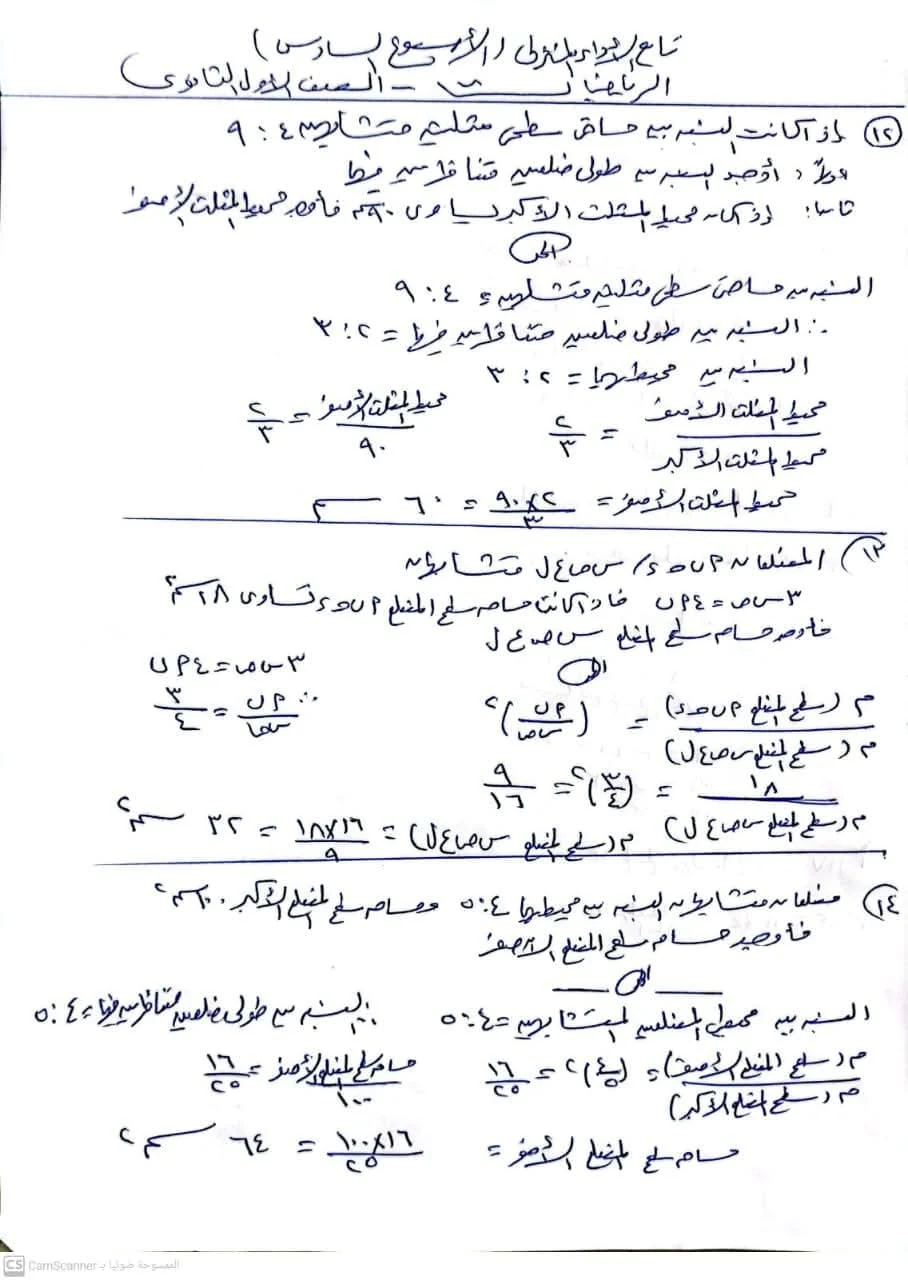 تابع الأداء المنزلى (الأسبوع السادس)
الرياضيات - الصف الأول الثانوى
١٢) إذا كانت النسبة بين مساحتى سطحى مثلثين متشابهين ٤ : ٩
أولاً: أوجد النسبة بين طولى ضلعين متناظرين فيهما
ثانيا: إذا كان محيط المثلث الأكبر يساوى ٩٠ سم فأوجد محيط المثلث الأصغر
الحل
النسبة بين مساحتى سطحى مثلثين متشابهين ٤ : ٩
∴ النسبة بين طولى ضلعين متناظرين فيهما = ٢ : ٣
النسبة بين محيطيهما = ٢ : ٣
محيط المثلث الأصغر / محيط المثلث الأكبر = ٢/٣ محيط المثلث الأصغر / ٩٠ = ٢/٣
محيط المثلث الأصغر = ٩٠×٢ / ٣ = ٦٠ سم
١٣) المضلعان أ ب ح ء / س ص ع ل متشابهان
٣ س ص = ٤ أ ب فإذا كانت مساحة سطح المضلع أ ب ح ء تساوى ١٨ سم٢
فأوجد مساحة سطح المضلع س ص ع ل
الحل
٣ س ص = ٤ أ ب
م (سطح المضلع أ ب ح ء) / م (سطح المضلع س ص ع ل) = (أ ب / س ص)٢ ∴ أ ب / س ص = ٣/٤
١٨ / م (سطح المضلع س ص ع ل) = (٣/٤)٢ = ٩/١٦
م (سطح المضلع س ص ع ل) = ١٨×١٦ / ٩ = ٣٢ سم٢
١٤) مضلعان متشابهان النسبة بين محيطيهما ٤ : ٥ ومساحة سطح المضلع الأكبر ١٠٠ سم٢
فأوجد مساحة سطح المضلع الأصغر
الحل
النسبة بين محيطى المضلعين المتشابهين = ٤ : ٥ ∴ النسبة بين طولى ضلعين متناظرين فيهما = ٤ : ٥
م (سطح المضلع الأصغر) / م (سطح المضلع الأكبر) = (٤/٥)٢ = ١٦/٢٥ مساحة سطح المضلع الأصغر / ١٠٠ = ١٦/٢٥
مساحة سطح المضلع الأصغر = ١٠٠×١٦ / ٢٥ = ٦٤ سم٢
CS CamScanner الممسوحة ضوئيا بـ